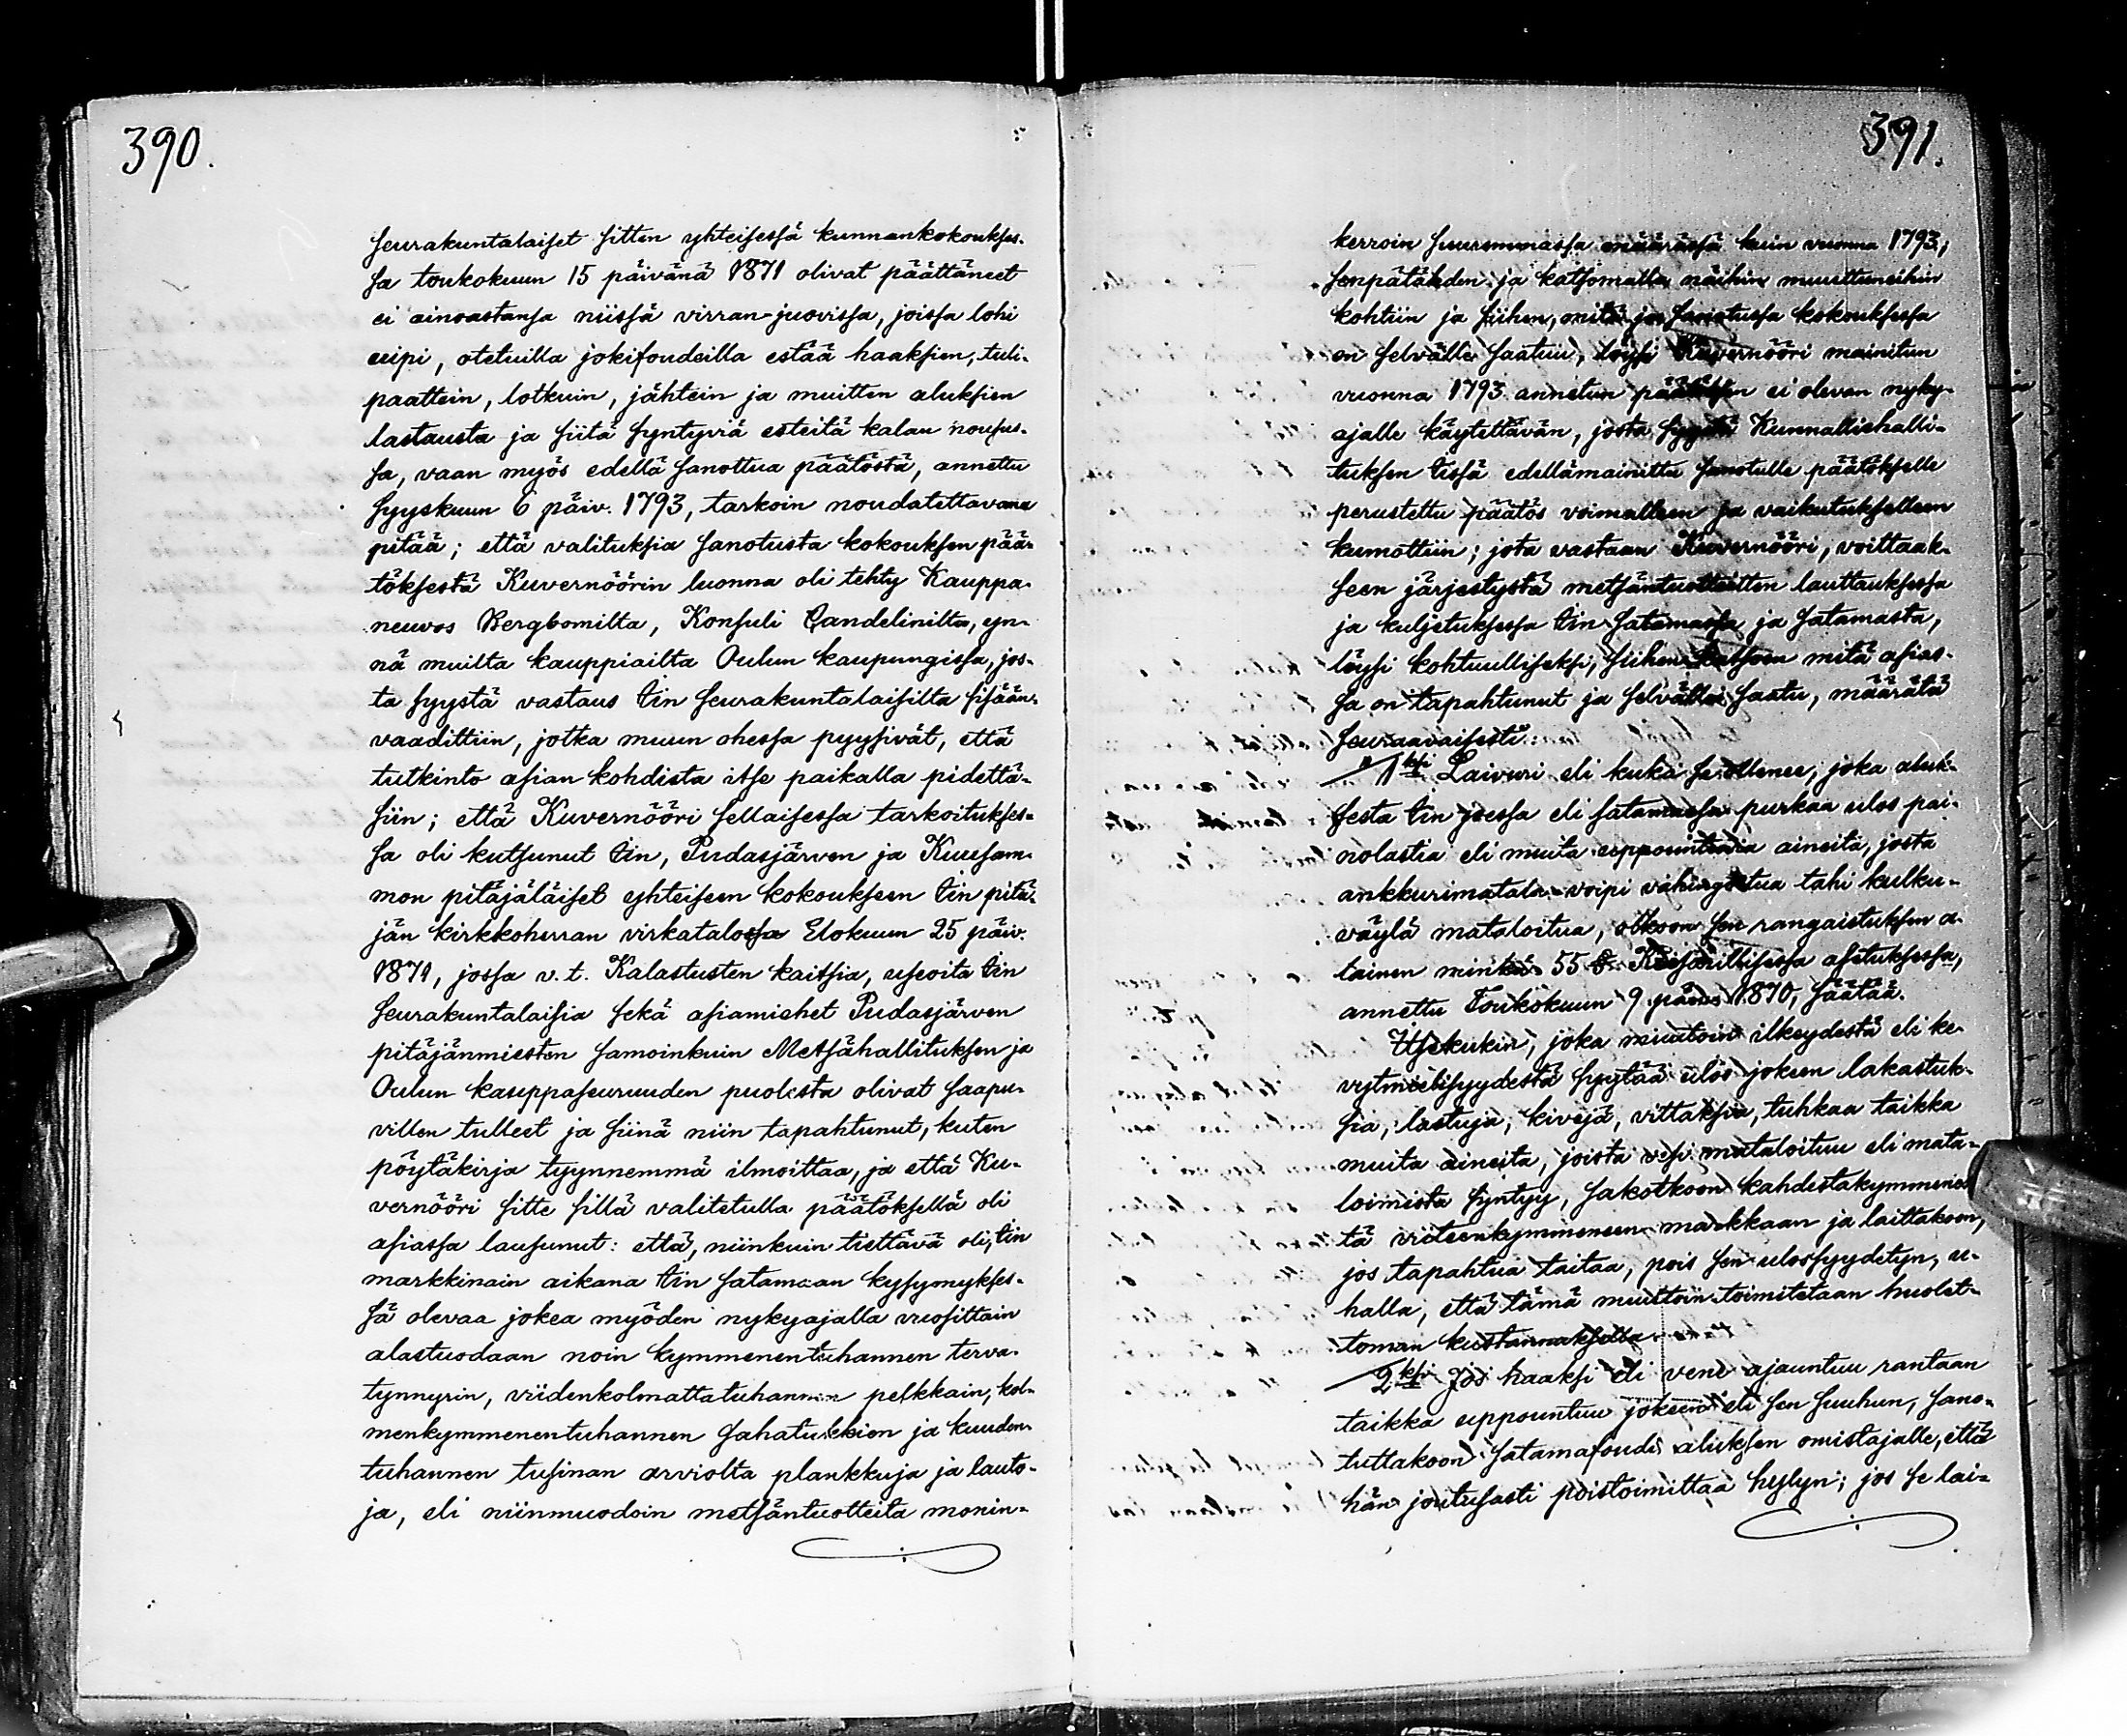 390.
seurakuntalaiset sitten yhteisessä kunnankokoukses-
sa toukokuun 15 päivänä 1871 olivat päättäneet
ei ainoastansa niissä virran-juovissa, joissa lohi
uipi, otetuilla jokifoudeilla estää haaksien, tuli-
paattein, lotkuin, jähtein ja muitten aluksien
lastausta ja siitä syntyviä esteitä kalan nousus-
sa, vaan myös edellä sanottua päätöstä, annettu
syyskuun 6 päiv. 1793, tarkoin noudatettavana
pitää; että valituksia sanotusta kokouksen pää-
töksestä Kuvernöörin luonna oli tehty Kauppa-
neuvos Bergbomilta, Konsuli Candelinilta, yn-
nä muilta kauppiailta Oulun kaupungissa, jos-
ta syystä vastaus Iin seurakuntalaisilta sisään-
vaadittiin, jotka muun ohessa pyysivät, että
tutkinto asian kohdista itse paikalla pidettä-
siin; että Kuvernööri sellaisessa tarkoitukses-
sa oli kutsunut Iin, Pudasjärven ja Kuusam-
mon pitäjäläiset yhteiseen kokoukseen Iin pitä-
jän kirkkoherran virkatalossa Elokuun 25 päiv.
1871, jossa v. t. Kalastusten kaitsia, useoita Iin
seurakuntalaisia sekä asiamiehet Pudasjärven
pitäjänmiesten samoinkuin Metsähallituksen ja
Oulun kauppaseuruuden puolesta olivat saapu-
villen tulleet ja siinä niin tapahtunut, kuten
pöytäkirja tyynnemmä ilmoittaa, ja että Ku-
vernööri sitte sillä valitetulla päätöksellä oli
asiassa lausunut: että, niinkuin tiettävä oli, Iin
markkinain aikana Iin satamaan kysymykses-
sä olevaa jokea myöden nykyajalla vuosittain
alastuodaan noin kymmenentuhannen terva-
tynnyrin, viidenkolmattatuhannen pelkkain, kol-
menkymmenentuhannen sahatukkien ja kuuden-
tuhannen tusinan arviolta plankkuja ja lauto-
ja, eli niinmuodoin metsäntuotteita monin-
391.
kerroin suuremmassa määrässä kuin vuonna 1793,
senpätähden ja katsomalla näihin muuttuneihin
kohtiin ja siihen, mitä ja sanotussa kokouksessa
on selvälle saatuu, löysi Kuvernööri mainitun
vuonna 1793 annetun päätöksen ei olevan nyky-
ajalle käytettävän, josta syystä Kunnallishalli-
tuksen tässä edellämainittu sanotulle päätökselle
perustettu päätös voimalleen ja vaikutukselleen
kumottiin; jota vastaan Kuvernööri, voittaak-
seen järjestystä metsäntuotteitten lauttauksessa
ja kuljetuksessa Iin satamassa ja satamasta,
löysi kohtuulliseksi, siihen katsoen mitä asias-
sa on tapahtunut ja selvälle saatu, määrätä
seuraavaisesti:
"1ksi Laivuri eli kuka se ollenee, joka aluk-
sesta Iin joessa eli satamassa purkaa ulos pai-
nolastia eli muita uppountuvia aineita, josta
ankkurimatala voipi vahingoittua tahi kulku-
väylä mataloitua, olkoon sen rangaistuksen a-
lainen minkä 55 § Keisarillisessa asetuksessa,
annettu Toukokuun 9 päivä 1870, säätää.
Usekukin, joka muutoin ilkeydestä eli ke-
vytmielisyydestä syytää ulos jokeen lakastuk-
sia, lastuja, kivejä, vittaksia, tuhkaa taikka
muita aineita, joista vesi mataloituu eli mata-
loimista syntyy, sakotkoon kahdestakymmenes-
tä viiteenkymmeneen markkaan ja laittakoon,
jos tapahtua taitaa, pois sen ulossyydetyn, u-
halla, että tämä muuttoin toimitetaan huolet-
toman kustannuksella.
2ksi Jos haaksi eli vene ajauntuu rantaan
taikka uppountuu jokeen eli sen suuhun, sano-
tuttakoon satamafoudi aluksen omistajalle, että
hän joutusasti poistoimittaa hylyn; jos se lai-